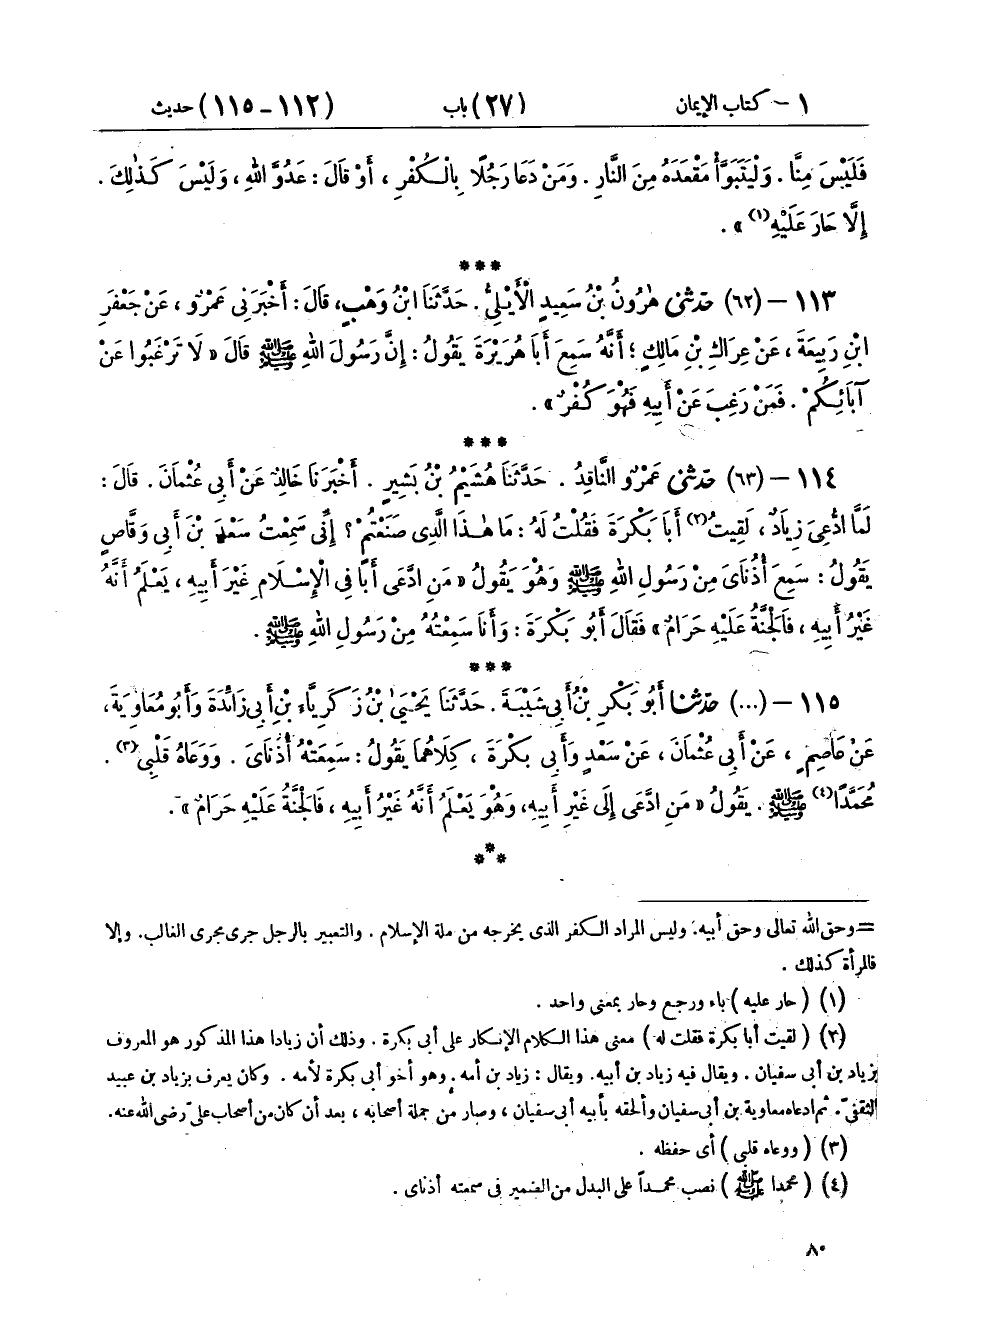 ١ – كتاب الإيمان (٢٧) باب (١١٢ – ١١٥) حديث
فَلَيْسَ مِنَّا . وَلْيَتَبَوَّأْ مَقْعَدَهُ مِنَ النَّارِ . وَمَنْ دَعَا رَجُلًا بِالْكُفْرِ ، أَوْ قَالَ : عَدُوَّ اللهِ ، وَلَيْسَ كَذٰلِكَ .
إِلَّا حَارَ عَلَيْهِ(١) » .
***
١١٣ – (٦٢) حَدَّثَنِي هٰرُونُ بْنُ سَعِيدٍ الْأَيْلِيُّ . حَدَّثَنَا ابْنُ وَهْبٍ، قَالَ : أَخْبَرَنِي عَمْرٌو ، عَنْ جَعْفَرِ
ابْنِ رَبِيعَةَ ، عَنْ عِرَاكِ بْنِ مَالِكٍ ؛ أَنَّهُ سَمِعَ أَبَا هُرَيْرَةَ يَقُولُ : إِنَّ رَسُولَ اللهِ ﷺ قَالَ « لَا تَرْغَبُوا عَنْ
آبَائِكُمْ . فَمَنْ رَغِبَ عَنْ أَبِيهِ فَهُوَ كُفْرٌ » .
***
١١٤ – (٦٣) حَدَّثَنِي عَمْرٌو النَّاقِدُ . حَدَّثَنَا هُشَيْمُ بْنُ بَشِيرٍ . أَخْبَرَنَا خَالِدٌ عَنْ أَبِي عُثْمَانَ . قَالَ :
لَمَّا ادُّعِيَ زِيَادٌ ، لَقِيتُ(٢) أَبَا بَكْرَةَ فَقُلْتُ لَهُ : مَا هٰذَا الَّذِي صَنَعْتُمْ ؟ إِنِّي سَمِعْتُ سَعْدَ بْنَ أَبِي وَقَّاصٍ
يَقُولُ : سَمِعَ أُذُنَايَ مِنْ رَسُولِ اللهِ ﷺ وَهُوَ يَقُولُ « مَنِ ادَّعَى أَبًا فِي الْإِسْلَامِ غَيْرَ أَبِيهِ ، يَعْلَمُ أَنَّهُ
غَيْرُ أَبِيهِ ، فَالْجَنَّةُ عَلَيْهِ حَرَامٌ » فَقَالَ أَبُو بَكْرَةَ : وَأَنَا سَمِعْتُهُ مِنْ رَسُولِ اللهِ ﷺ .
***
١١٥ – (...) حَدَّثَنَا أَبُو بَكْرِ بْنُ أَبِي شَيْبَةَ . حَدَّثَنَا يَحْيَى بْنُ زَكَرِيَّاءَ بْنِ أَبِي زَائِدَةَ وَأَبُو مُعَاوِيَةَ ،
عَنْ عَاصِمٍ ، عَنْ أَبِي عُثْمَانَ ، عَنْ سَعْدٍ وَأَبِي بَكْرَةَ ، كِلَاهُمَا يَقُولُ : سَمِعَتْهُ أُذُنَايَ . وَوَعَاهُ قَلْبِي(٣) .
مُحَمَّدًا(٤) ﷺ . يَقُولُ « مَنِ ادَّعَى إِلَى غَيْرِ أَبِيهِ، وَهُوَ يَعْلَمُ أَنَّهُ غَيْرُ أَبِيهِ ، فَالْجَنَّةُ عَلَيْهِ حَرَامٌ » .
***
= وحق الله تعالى وحق أبيه. وليس المراد الكفر الذى يخرجه من ملة الإسلام . والتعبير بالرجل جرى مجرى الغالب. وإلا
فالمرأة كذلك .
(١) ( حار عليه ) باء ورجع وحار بمعنى واحد .
(٢) ( لقيت أبا بكرة فقلت له ) معنى هذا الكلام الإنكار على أبى بكرة . وذلك أن زيادا هذا المذكور هو المعروف
بزياد بن أبى سفيان . ويقال فيه زياد بن أبيه. ويقال : زياد بن أمه. وهو أخو أبى بكرة لأمه . وكان يعرف بزياد بن عبيد
الثقفىّ. ثم ادعاه معاوية بن أبى سفيان وألحقه بأبيه أبى سفيان ، وصار من جملة أصحابه ، بعد أن كان من أصحاب علىّ رضى الله عنه.
(٣) ( ووعاه قلبى ) أى حفظه .
(٤) ( محمدا ﷺ ) نصب محمداً على البدل من الضمير فى سمعته أذناى .
٨٠